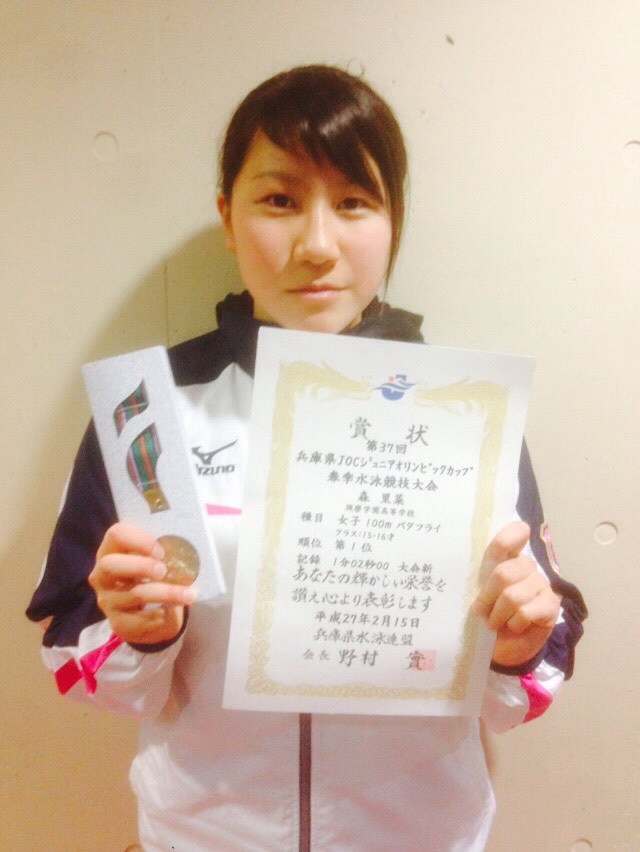 MIZUNO
賞状
第37回
兵庫県JOCジュニアオリンピックカップ
春季水泳競技大会
森 里菜
須磨学園高等学校
種目 女子 100m バタフライ
クラス:15-16才
順位 第1位
記録 1分02秒00 大会新
あなたの輝かしい栄誉を
讃え心より表彰します
平成27年2月15日
兵庫県水泳連盟
会長 野村 實